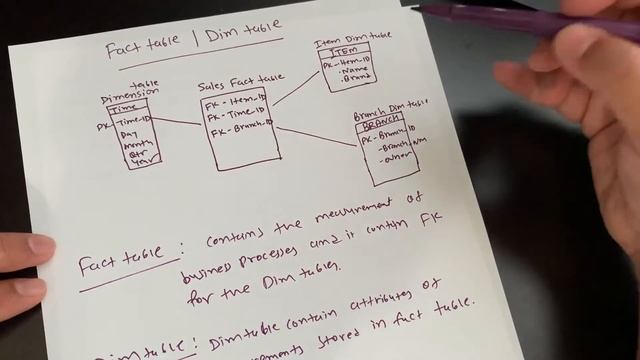 Fact table | Dim table
table
Dimension
Time
PK - Time-ID
Day
month
Qtr
Year
Sales Fact table
FK - Item-ID
FK - Time-ID
FK - Branch-ID
Item Dim table
ITEM
PK - Item-ID
- Name
- Brand
Branch Dim table
BRANCH
PK - Branch-ID
- Branch-Nm
- owner
Fact table : contains the measurement of
business processes and it contain FK
for the Dim tables.
Dim table : Dim table contain attributes of
stored in fact table.